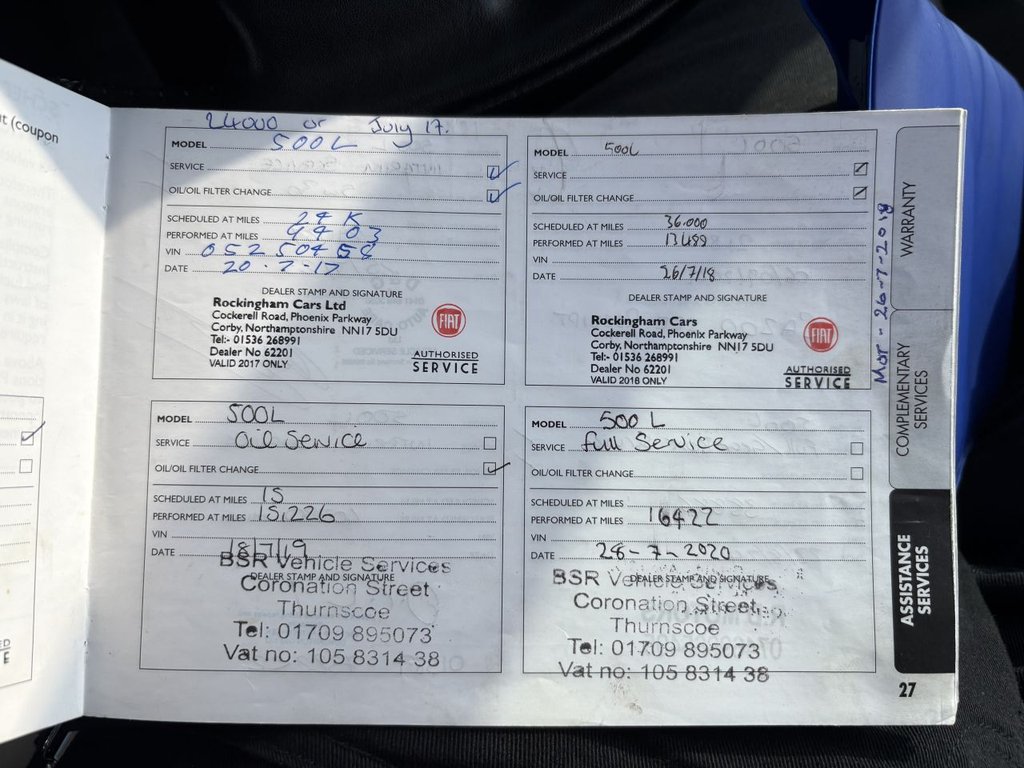 t (coupon
24000 or July 17.
MODEL 500L
SERVICE
OIL/OIL FILTER CHANGE
SCHEDULED AT MILES 24 K
PERFORMED AT MILES 9403
VIN 05250458
DATE 20-7-17
DEALER STAMP AND SIGNATURE
Rockingham Cars Ltd
Cockerell Road, Phoenix Parkway
Corby, Northamptonshire NN17 5DU
Tel:- 01536 268991
Dealer No 62201
VALID 2017 ONLY
FIAT
AUTHORISED
SERVICE
MODEL 500L
SERVICE
OIL/OIL FILTER CHANGE
SCHEDULED AT MILES 36.000
PERFORMED AT MILES 13488
VIN
DATE 26/7/18
DEALER STAMP AND SIGNATURE
Rockingham Cars
Cockerell Road, Phoenix Parkway
Corby, Northamptonshire NN17 5DU
Tel:- 01536 268991
Dealer No 62201
VALID 2018 ONLY
FIAT
AUTHORISED
SERVICE
MOT - 26-7-2018
MODEL 500L
SERVICE Oil Service
OIL/OIL FILTER CHANGE
SCHEDULED AT MILES 15
PERFORMED AT MILES 15,226
VIN
DATE 18/7/19
DEALER STAMP AND SIGNATURE
BSR Vehicle Services
Coronation Street
Thurnscoe
Tel: 01709 895073
Vat no: 105 8314 38
MODEL 500 L
SERVICE full Service
OIL/OIL FILTER CHANGE
SCHEDULED AT MILES
PERFORMED AT MILES 16422
VIN
DATE 28-7-2020
DEALER STAMP AND SIGNATURE
BSR Vehicle Services
Coronation Street
Thurnscoe
Tel: 01709 895073
Vat no: 105 8314 38
WARRANTY
COMPLEMENTARY
SERVICES
ASSISTANCE
SERVICES
27